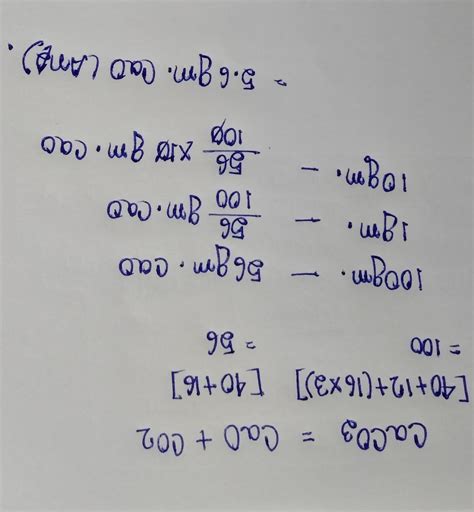 CaCO3 = CaO + CO2
[40+12+(16×3)] [40+16]
= 100 = 56
100gm. — 56gm. CaO
1gm. — 56/100 gm. CaO
10gm. — 56/100 ×10 gm. CaO
= 5.6gm. CaO (Ans).